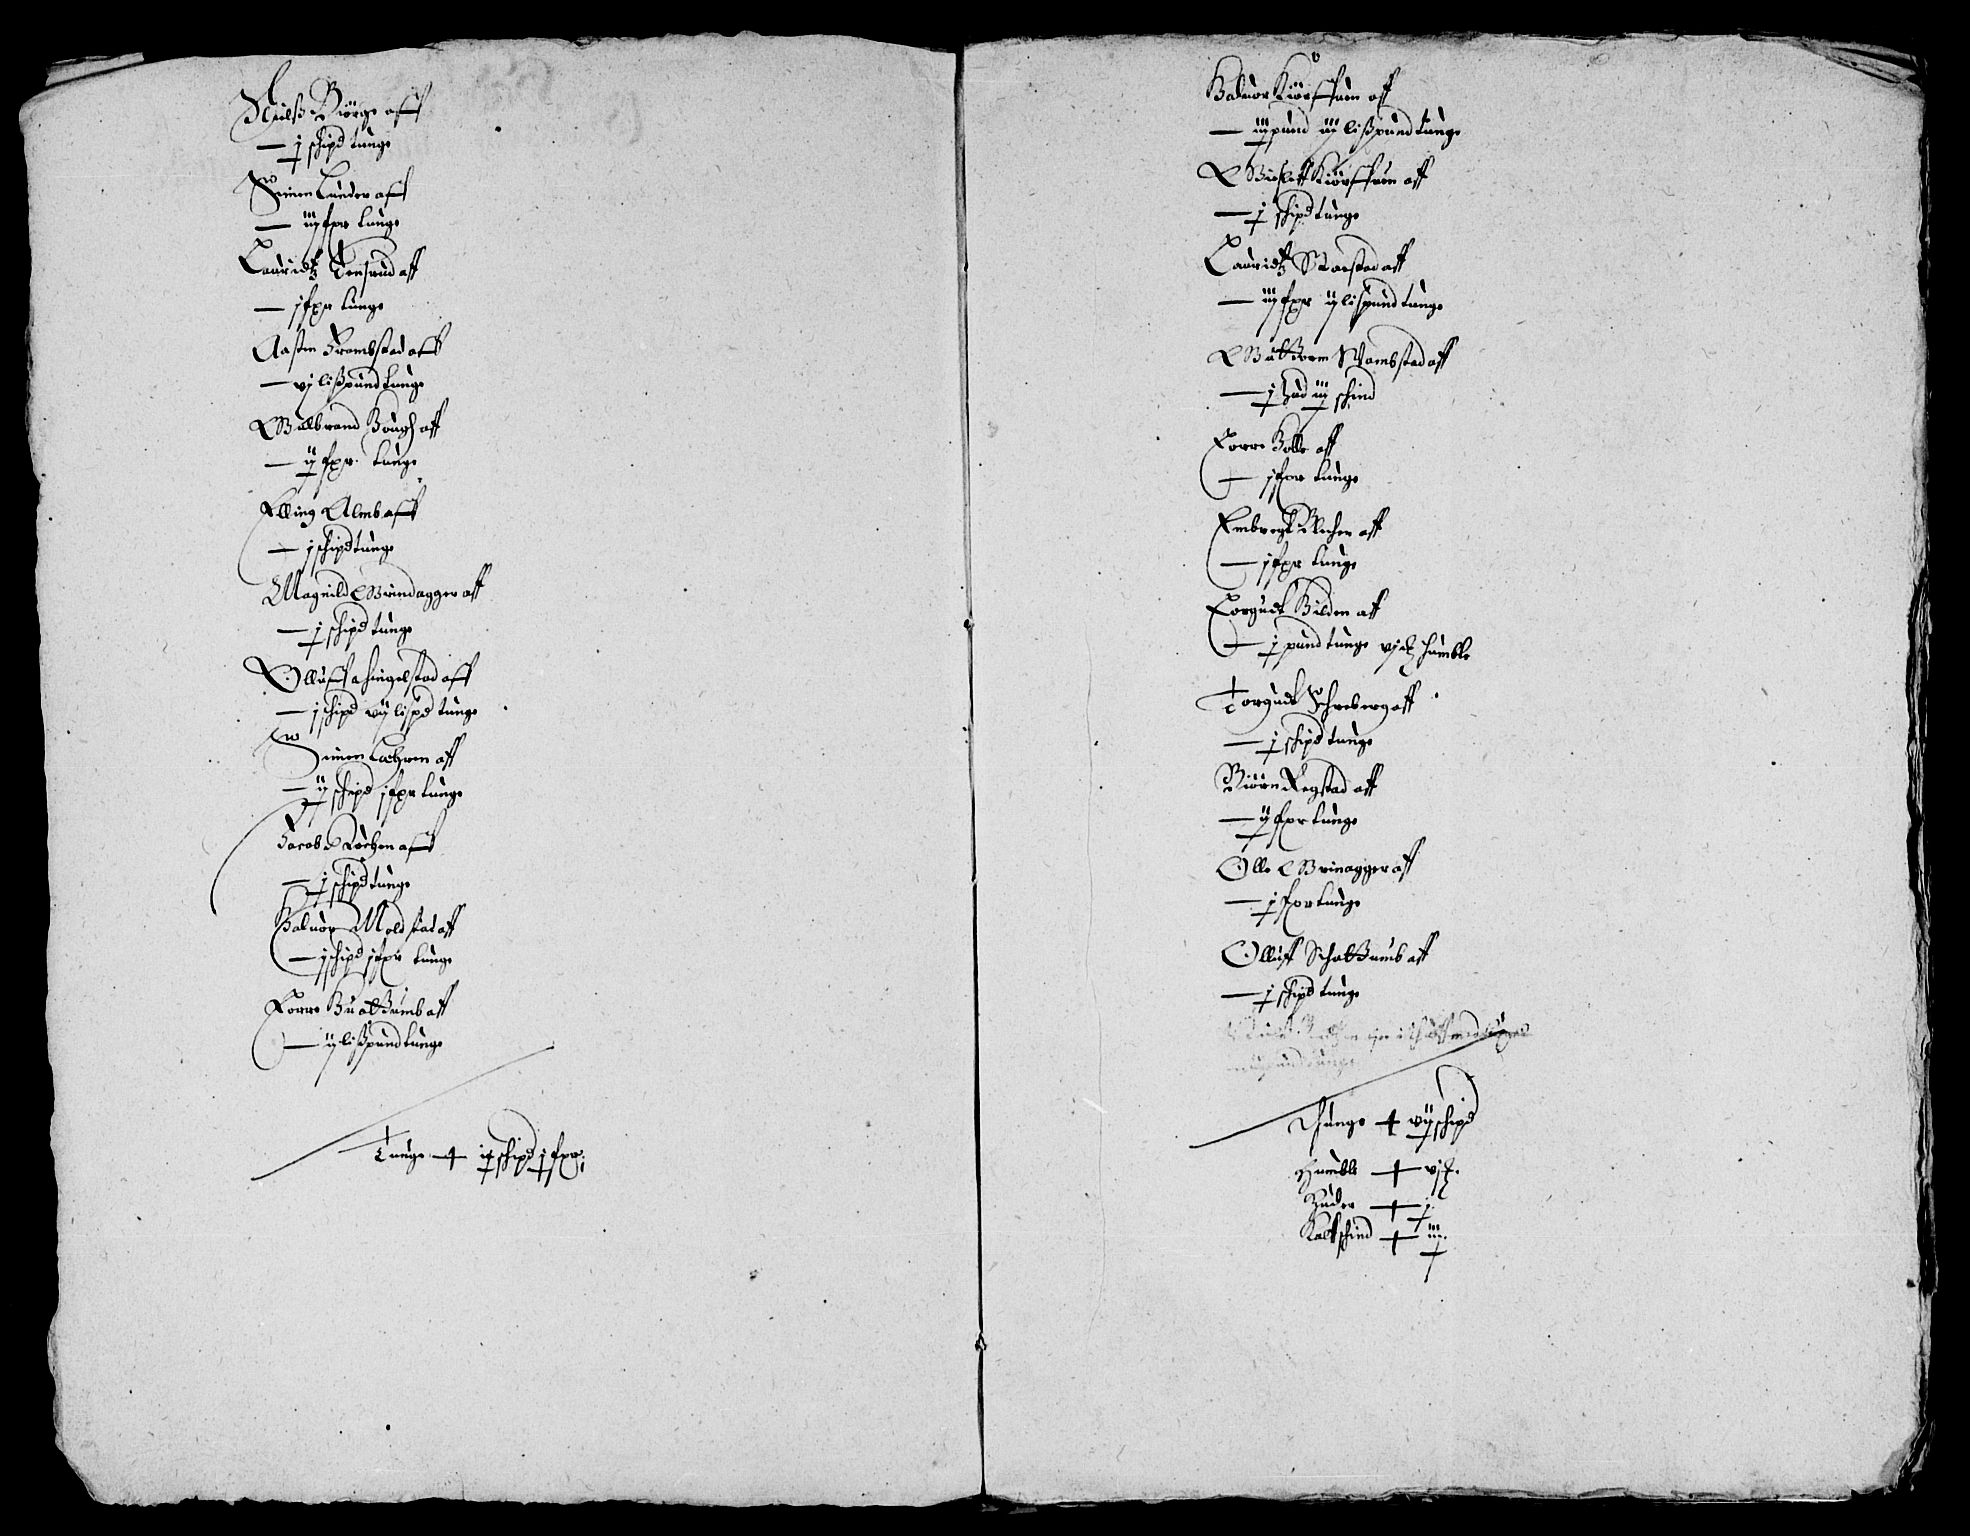 Nielß Biörge aff
— j schipd tunge
Simen Lunder aff
— iij fpr tunge
Lauridtz Tensrud aff
— j fpr tunge
Aasten Frambstad aff
— vj lißpund tunge
Gulbrand Hough aff
— ij fpr. tunge
Elling Almb aff
— j schipd tunge
Magnild Grindagger aff
— j schipd tunge
Olluff a hingelstad aff
— j schipd vij lispd tunge
Simen Løhren aff
— ij schipd j fpr tunge
Jacob Løchen aff
— j schipd tunge
Haluor Moldstad aff
— j schipd j fpr tunge
Torre Hualtzumb aff
— ij lißpund tunge
Tunge — ix schipd j fpr:
Haluor Kiörstuen aff
— iij pund iij lißpund tunge
Gieslff Kiörstuen aff
— j schipd tunge
Lauridtz Starstad aff
— iij fpr ij lispund tunge
Gutzorm Rambstad aff
— j hud iij schind
Torre Holle aff
— j fpr tunge
Embregt Blichen aff
— j fpr tunge
Torgudt Bilden aff
— j pund tunge vj tz humble
Torgudt Schreberg aff
— j schipd tunge
Biörn Regstad aff
— ij fpr tunge
Olle Grinagger aff
— j fpr tunge
Olluff Schaltzumb aff
— j schipd tunge
Thunge — vij schipd
Humble — vj tz.
Huder — j
Kalfschind — iij.